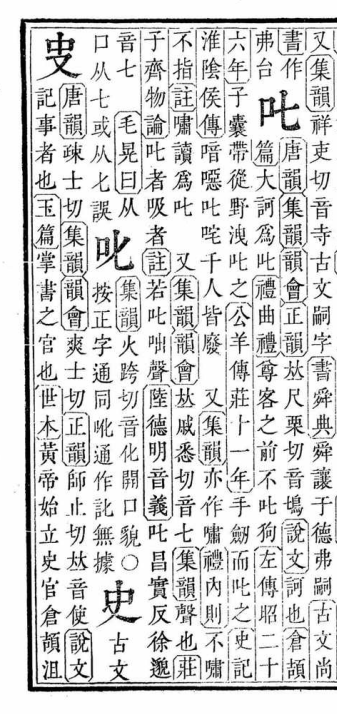 又集韻祥吏切音寺古文嗣字書舜典舜讓于德弗嗣古文尚
書作
弗台
叱
唐韻集韻韻會正韻𠀤尺栗切音㙈說文訶也倉頡
篇大訶爲叱禮曲禮尊客之前不叱狗左傳昭二十
六年子囊帶從野洩叱之公羊傳莊十一年手劒而叱之史記
淮陰侯傳喑噁叱咤千人皆廢 又集韻亦作嘯禮內則不嘯
不指註嘯讀爲叱 又集韻韻會𠀤戚悉切音七集韻聲也莊
子齊物論叱者吸者註若叱咄聲陸德明音義叱昌實反徐邈
音七 毛晃曰从
口从七或从匕誤
𠮟
集韻火跨切音化開口貌○
按正字通同吪通作訛無據
史
古文
㕜
唐韻疎士切集韻韻會爽士切正韻師止切𠀤音使說文
記事者也玉篇掌書之官也世本黃帝始立史官倉頡沮